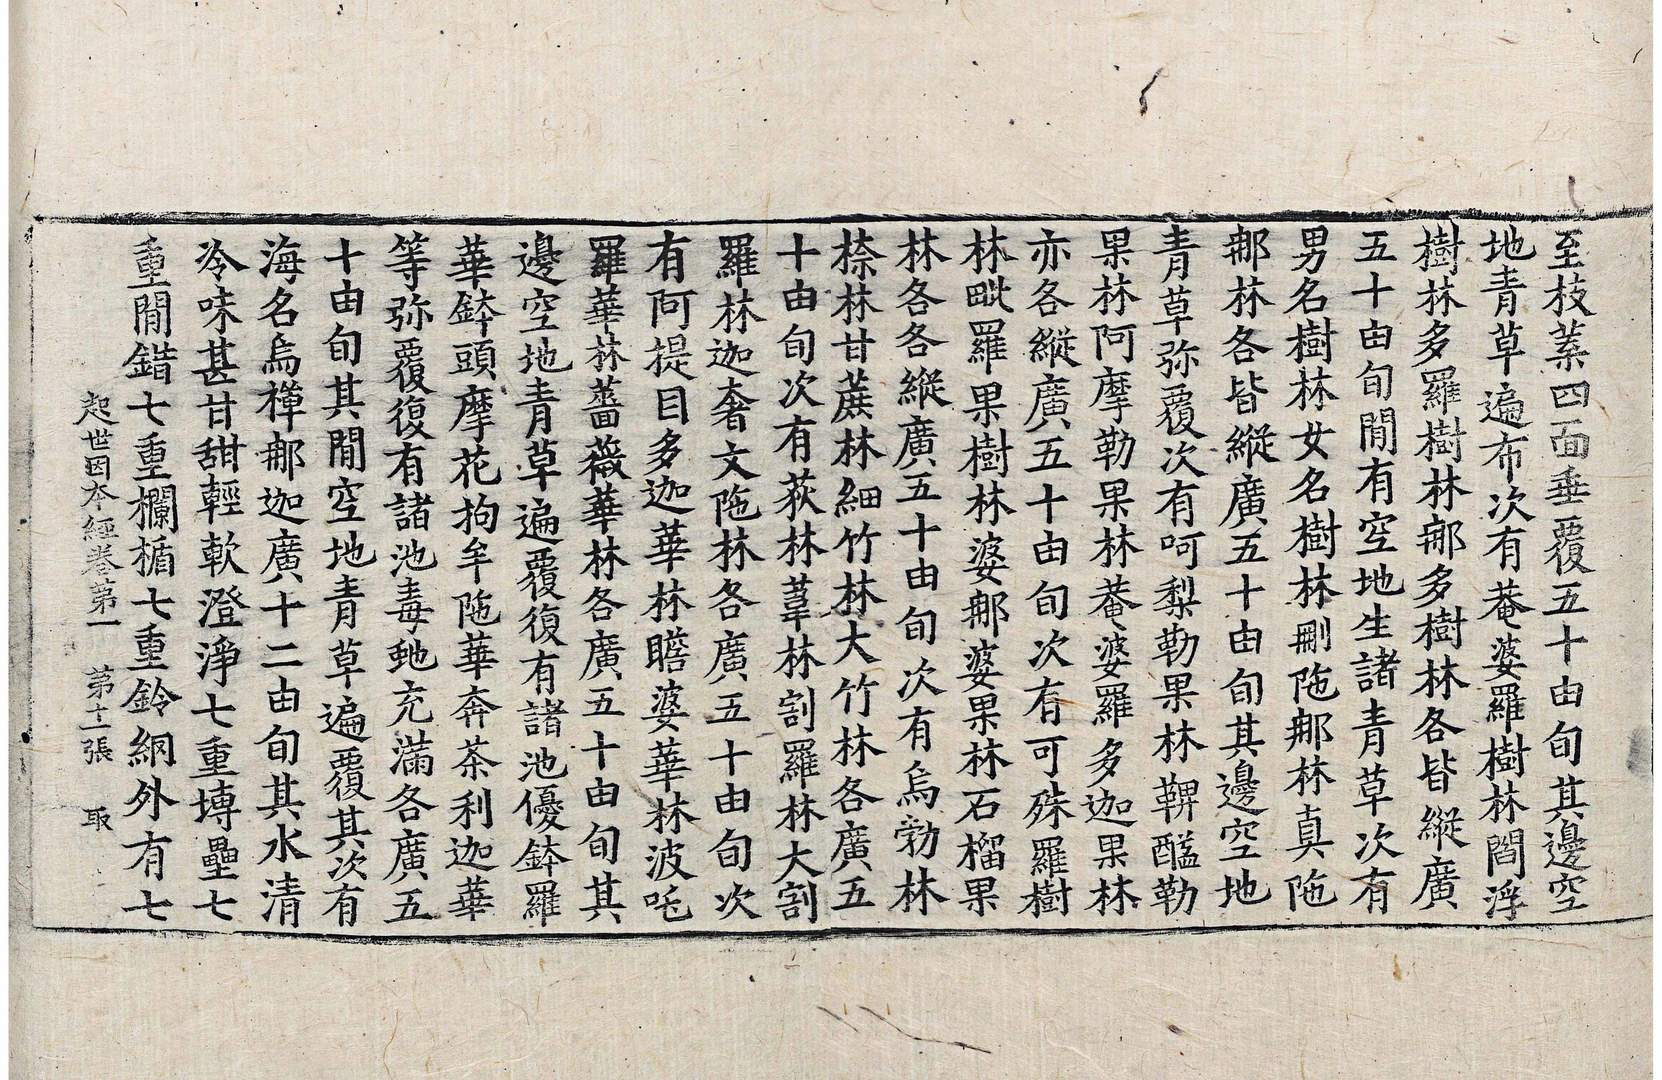 至枝葉四面垂覆五十由旬其邊空
地青草遍布次有菴婆羅樹林閻浮
樹林多羅樹林那多樹林各皆縱廣
五十由旬閒有空地生諸青草次有
男名樹林女名樹林刪陁那林真陁
那林各皆縱廣五十由旬其邊空地
青草弥覆次有呵梨勒果林鞞醯勒
果林阿摩勒果林菴婆羅多迦果林
亦各縱廣五十由旬次有可殊羅樹
林毗羅果樹林婆那婆果林石榴果
林各各縱廣五十由旬次有烏勃林
㮈林甘蔗林細竹林大竹林各廣五
十由旬次有荻林葦林割羅林大割
羅林迦奢文陁林各廣五十由旬次
有阿提目多迦華林瞻婆華林波吒
羅華林薔薇華林各廣五十由旬其
邊空地青草遍覆復有諸池優鉢羅
華鉢頭摩花拘牟陁華奔茶利迦華
等弥覆復有諸池毒虵充滿各廣五
十由旬其閒空地青草遍覆其次有
海名烏禪那迦廣十二由旬其水清
冷味甚甘甜輕軟澄淨七重塼壘七
重閒錯七重欄楯七重鈴網外有七
起世因本經卷第一 第十一張 取